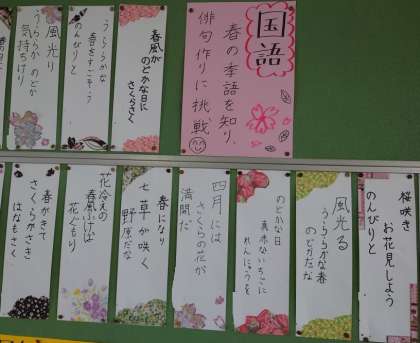 国語
春の季語を知り、
俳句作りに挑戦
春風が
のどかな日に
さくらさく
うららかな
春をすごそう
のんびりと
風光り
うららか のどか
気持ちけり
桜咲き
お花見しよう
のんびりと
風光る
うららかな春
のどかだな
のどかな日
真赤ないちごに
れんにゅうを
四月には
さくらの花が
満開だ
春になり
七草が咲く
野原だな
花冷えの
春風ふけば
花ぐもり
春がきて
さくらがさき
はなもさく